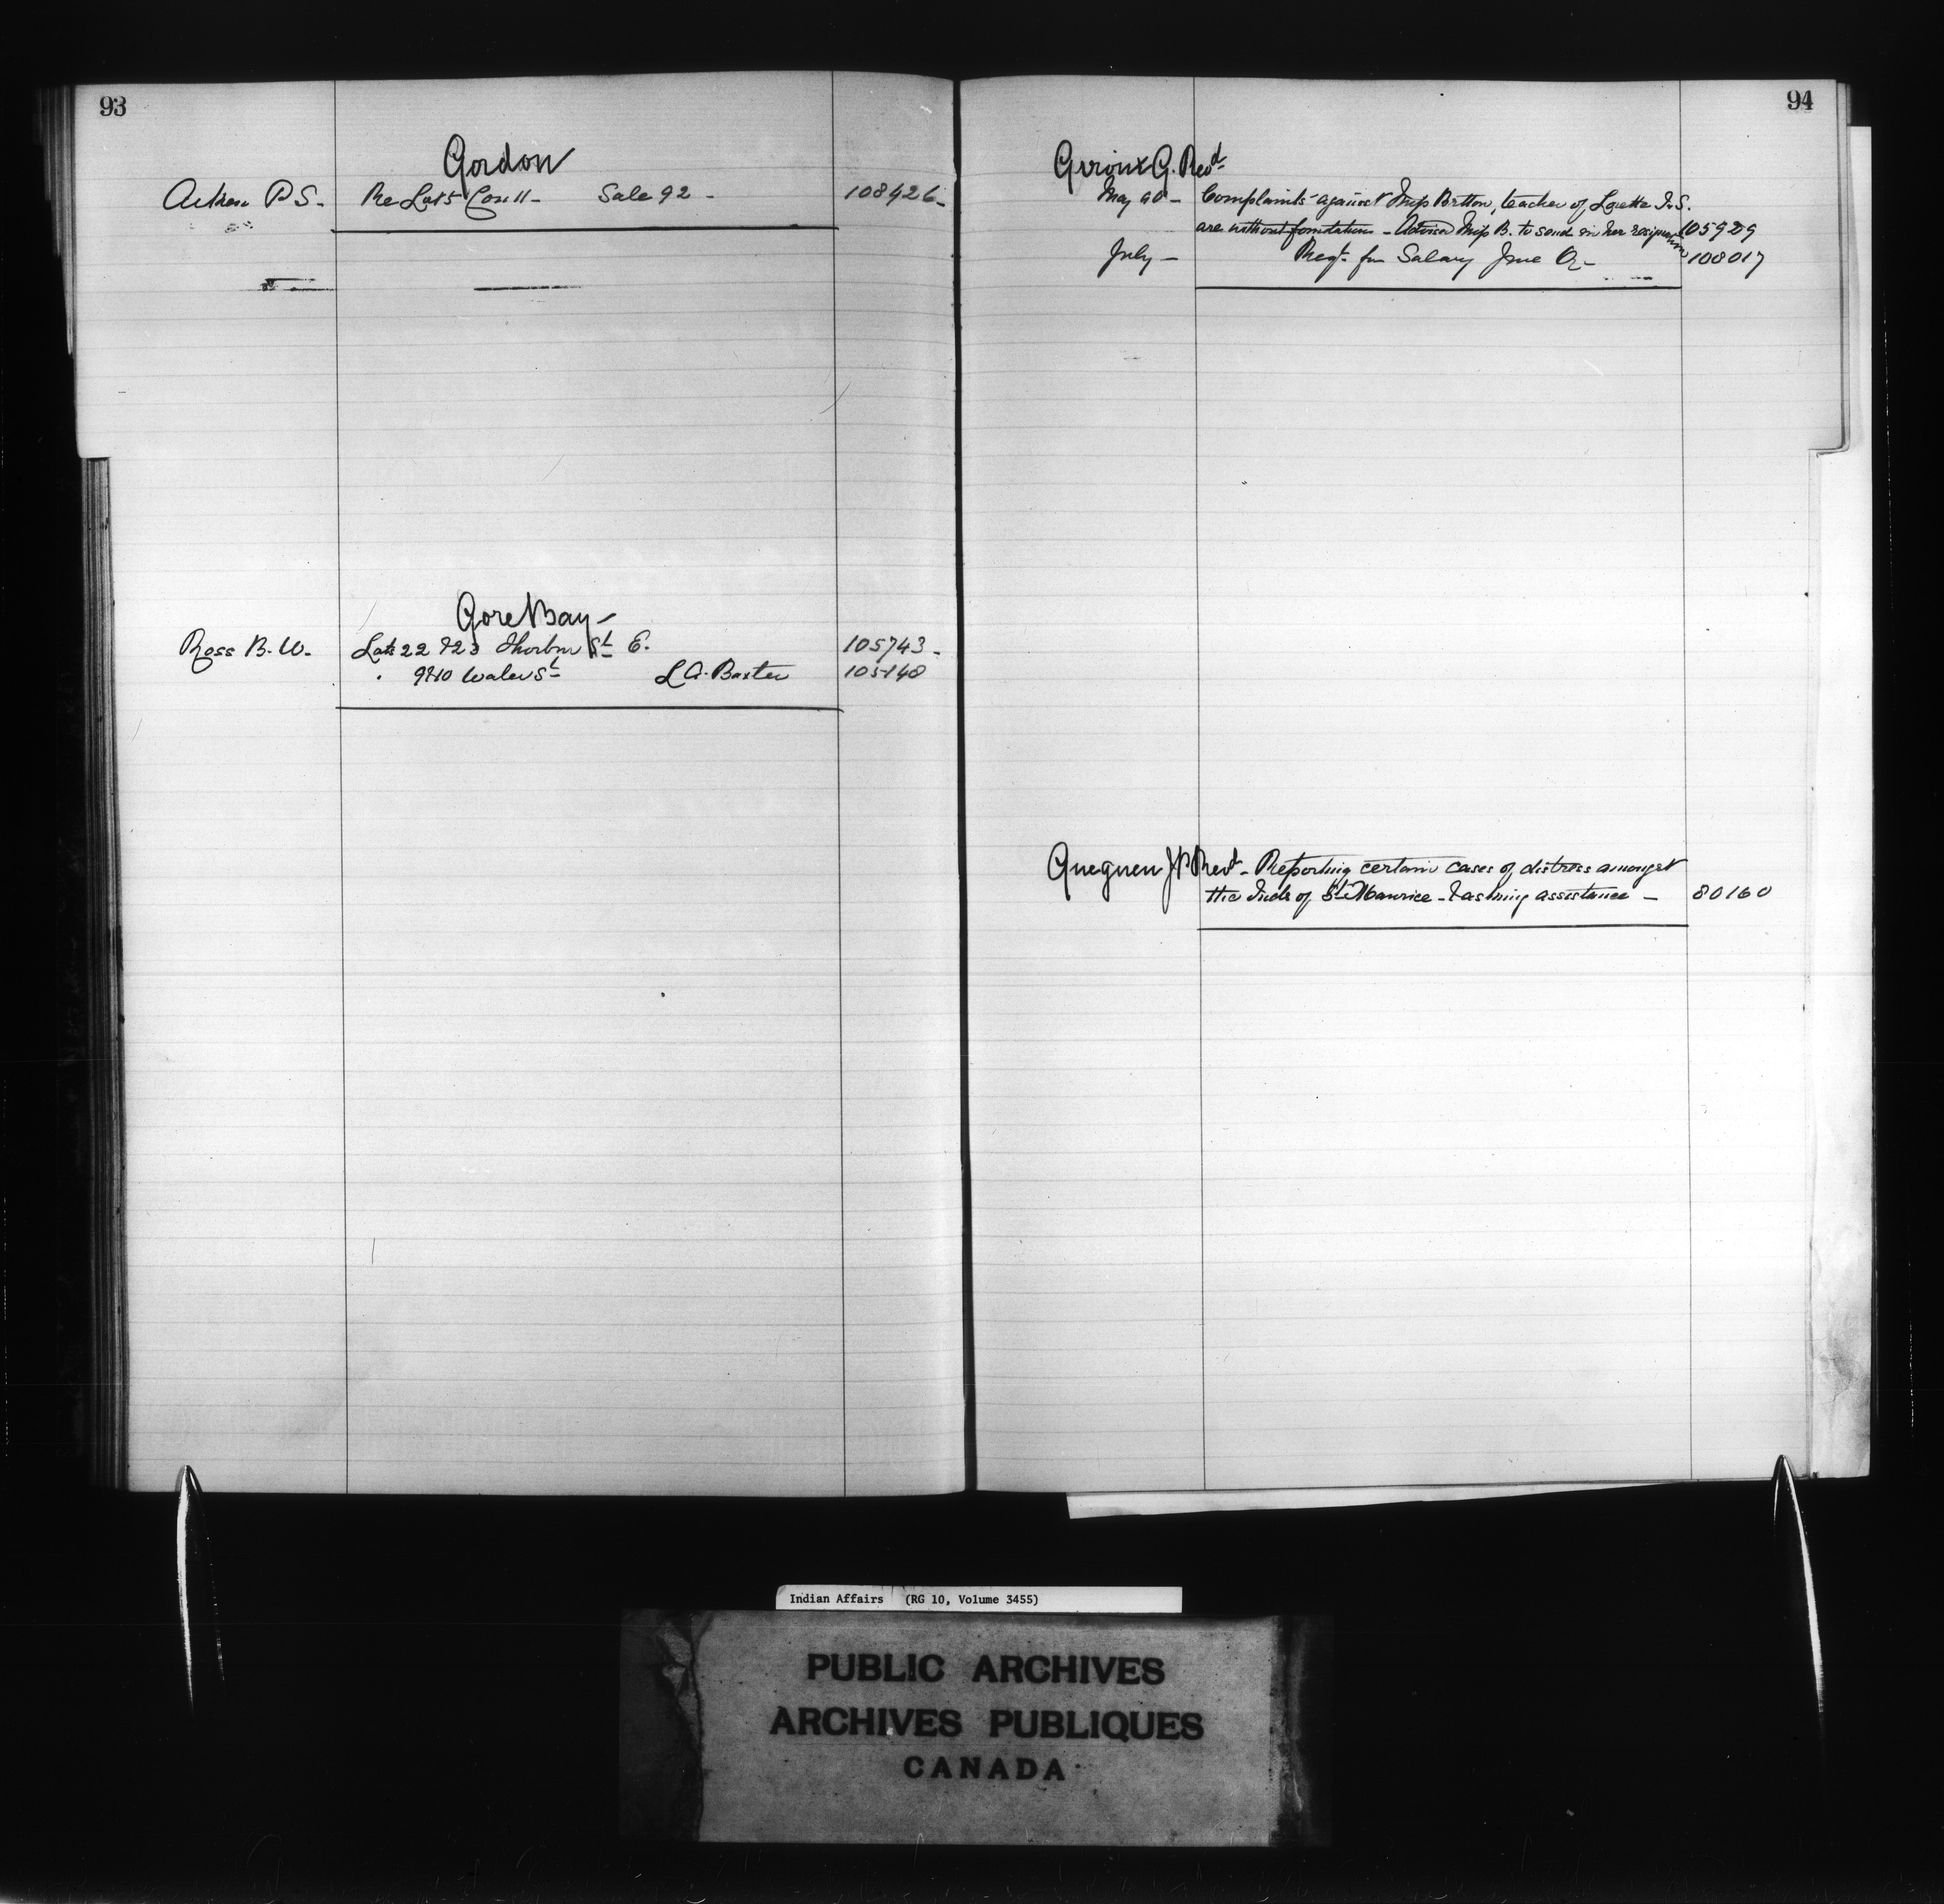 93
Gordon
Aitken P S. Re Lot 5 Con 11 - Sale 92 - 108426
Gore Bay -
Ross B. W. Lots 22 & 23 Thorburn St E. 105743 -
" 9 & 10 Water St L A. Baxter 105140
94
Giroux G. Revd
May 90 - Complaints against Miss Britton, teacher of Lorette I. S.
are without foundation - Advised Miss B. to send in her resignation 105929
July - Reqt for Salary June Qr - 108017
Gueguen J P Revd - Reporting certain cases of distress amongst
the Inds of St Maurice - & asking assistance - 80160
Indian Affairs (RG 10, Volume 3455)
PUBLIC ARCHIVES
ARCHIVES PUBLIQUES
CANADA